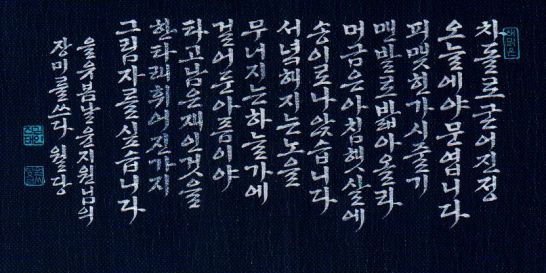 차돌로 굳어진 정
오늘에야 문엽니다
피맺힌 가시줄기
맨발로 밟아 올라
머금은 아침 햇살에
송이로 나왔습니다
서녘 해지는 노을
무너지는 하늘가에
걸어둔 아픔이야
타고 남은 재인것을
한타래 휘어진 가지
그림자를 싣습니다
을유 봄날 을지원님의
장미를 쓰다 월당